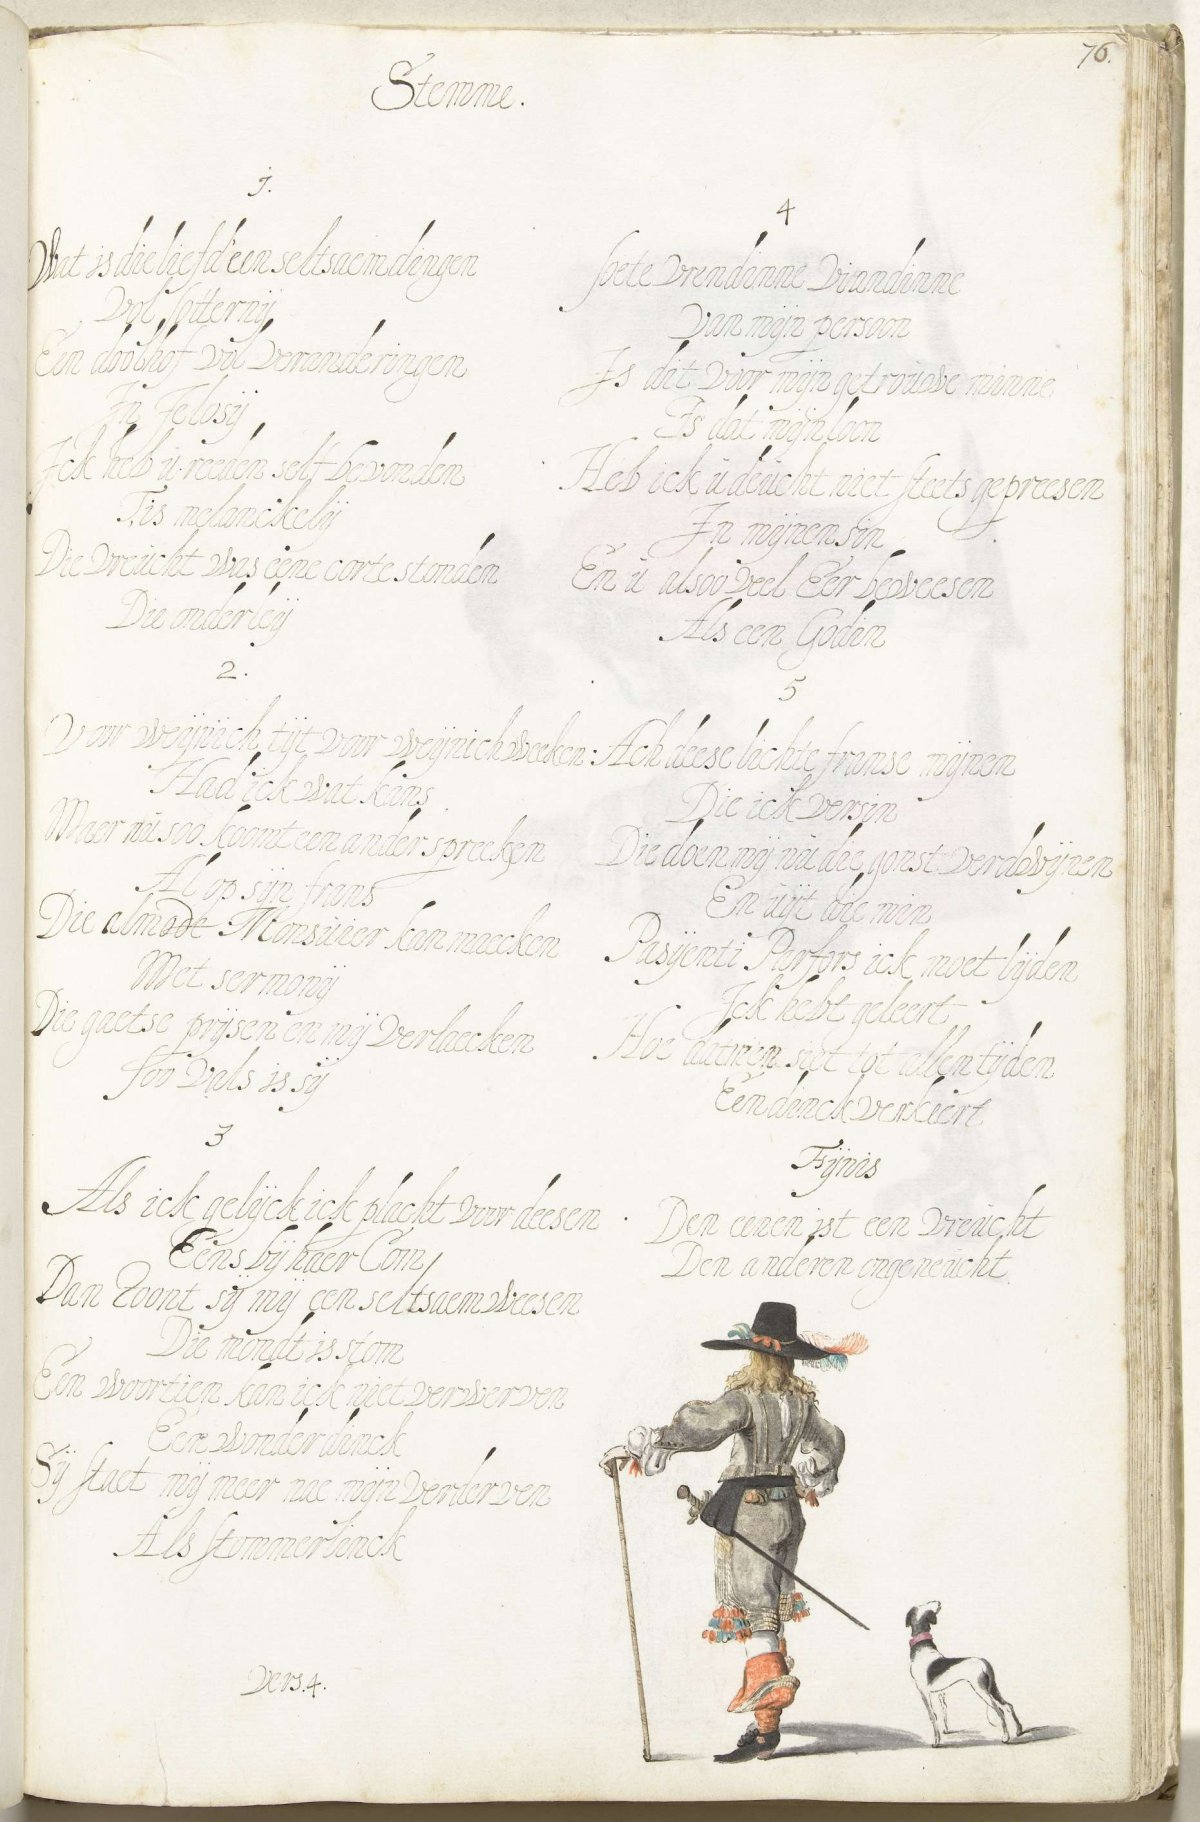 76.
Stemme.
1.
Wat is die liefd' een seltsaem dingen
Vol sotternij
Een doolhof vol veranderingen
In Jelosij
Ick heb u reeden self bevonden
T,is melanckelij
Die vreucht was eene corte stonden
Die onderleij
2.
Voor weijnich tijt voor weijnich weeken:
Had ick wat kans
Maer nu soo koomt een ander spreeken
Al op sijn frans
Die almode Monsuier kan maecken
Met sermonij
Die gaetse prijsen en mij verlaecken
soo vals is sij
3
Als ick gelijck ick placht voor deesen
Eens bij haer Com
Dan toont sij mij een seltsaem weesen
Die mondt is stom
Een woortien kan ick niet verwerven
Een wonder dinck
Sij staet mij meer nae mijn verderven
Als stommerlinck
Vers.4.
4
soete vrendinne viandinne
Van mijn persoon
Is dit voor mijn getrouwe minne
Is dat mijn loon
Heb ick u deucht niet steets gepreesen
In mijnen sin
En u alsoo veel Eer beweesen
Als een Godin
5
Ach deese lichte franse mijnen
Die ick versin
Die doen mij nu die gonst verdwijnen
En uijt die min
Pasijenti Parfors ick moet lijden
Ick hebt geleert
Hoe datmen siet tot allen tijden
Een dinck verkeert
Fijnis
Den eenen ist een vreucht
Den anderen ongeneucht